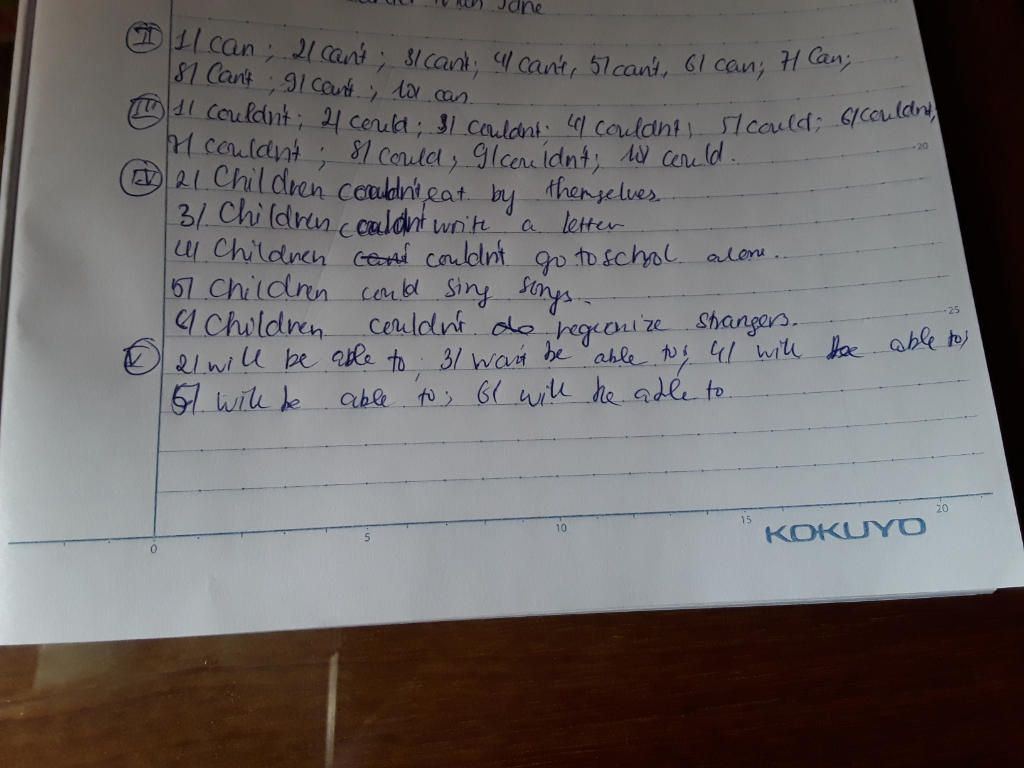 with Jane
II 1/ can; 2/ can't; 3/ can't; 4/ can't, 5/ can't, 6/ can; 7/ Can;
8/ Can't; 9/ can't; 10/ can
III 1/ couldn't; 2/ could; 3/ couldn't; 4/ couldn't; 5/ could; 6/ couldn't,
7/ couldn't; 8/ could, 9/ couldn't; 10/ could.
20
IV 2/ Children couldn't eat by themselves
3/ Children couldn't write a letter
4/ Children can't couldn't go to school alone.
5/ Children could sing songs.
25
6/ Children couldn't do regconize strangers.
V 2/ will be able to; 3/ won't be able to; 4/ will be able to;
5/ will be able to; 6/ will be able to
0 5 10 15 20
KOKUYO